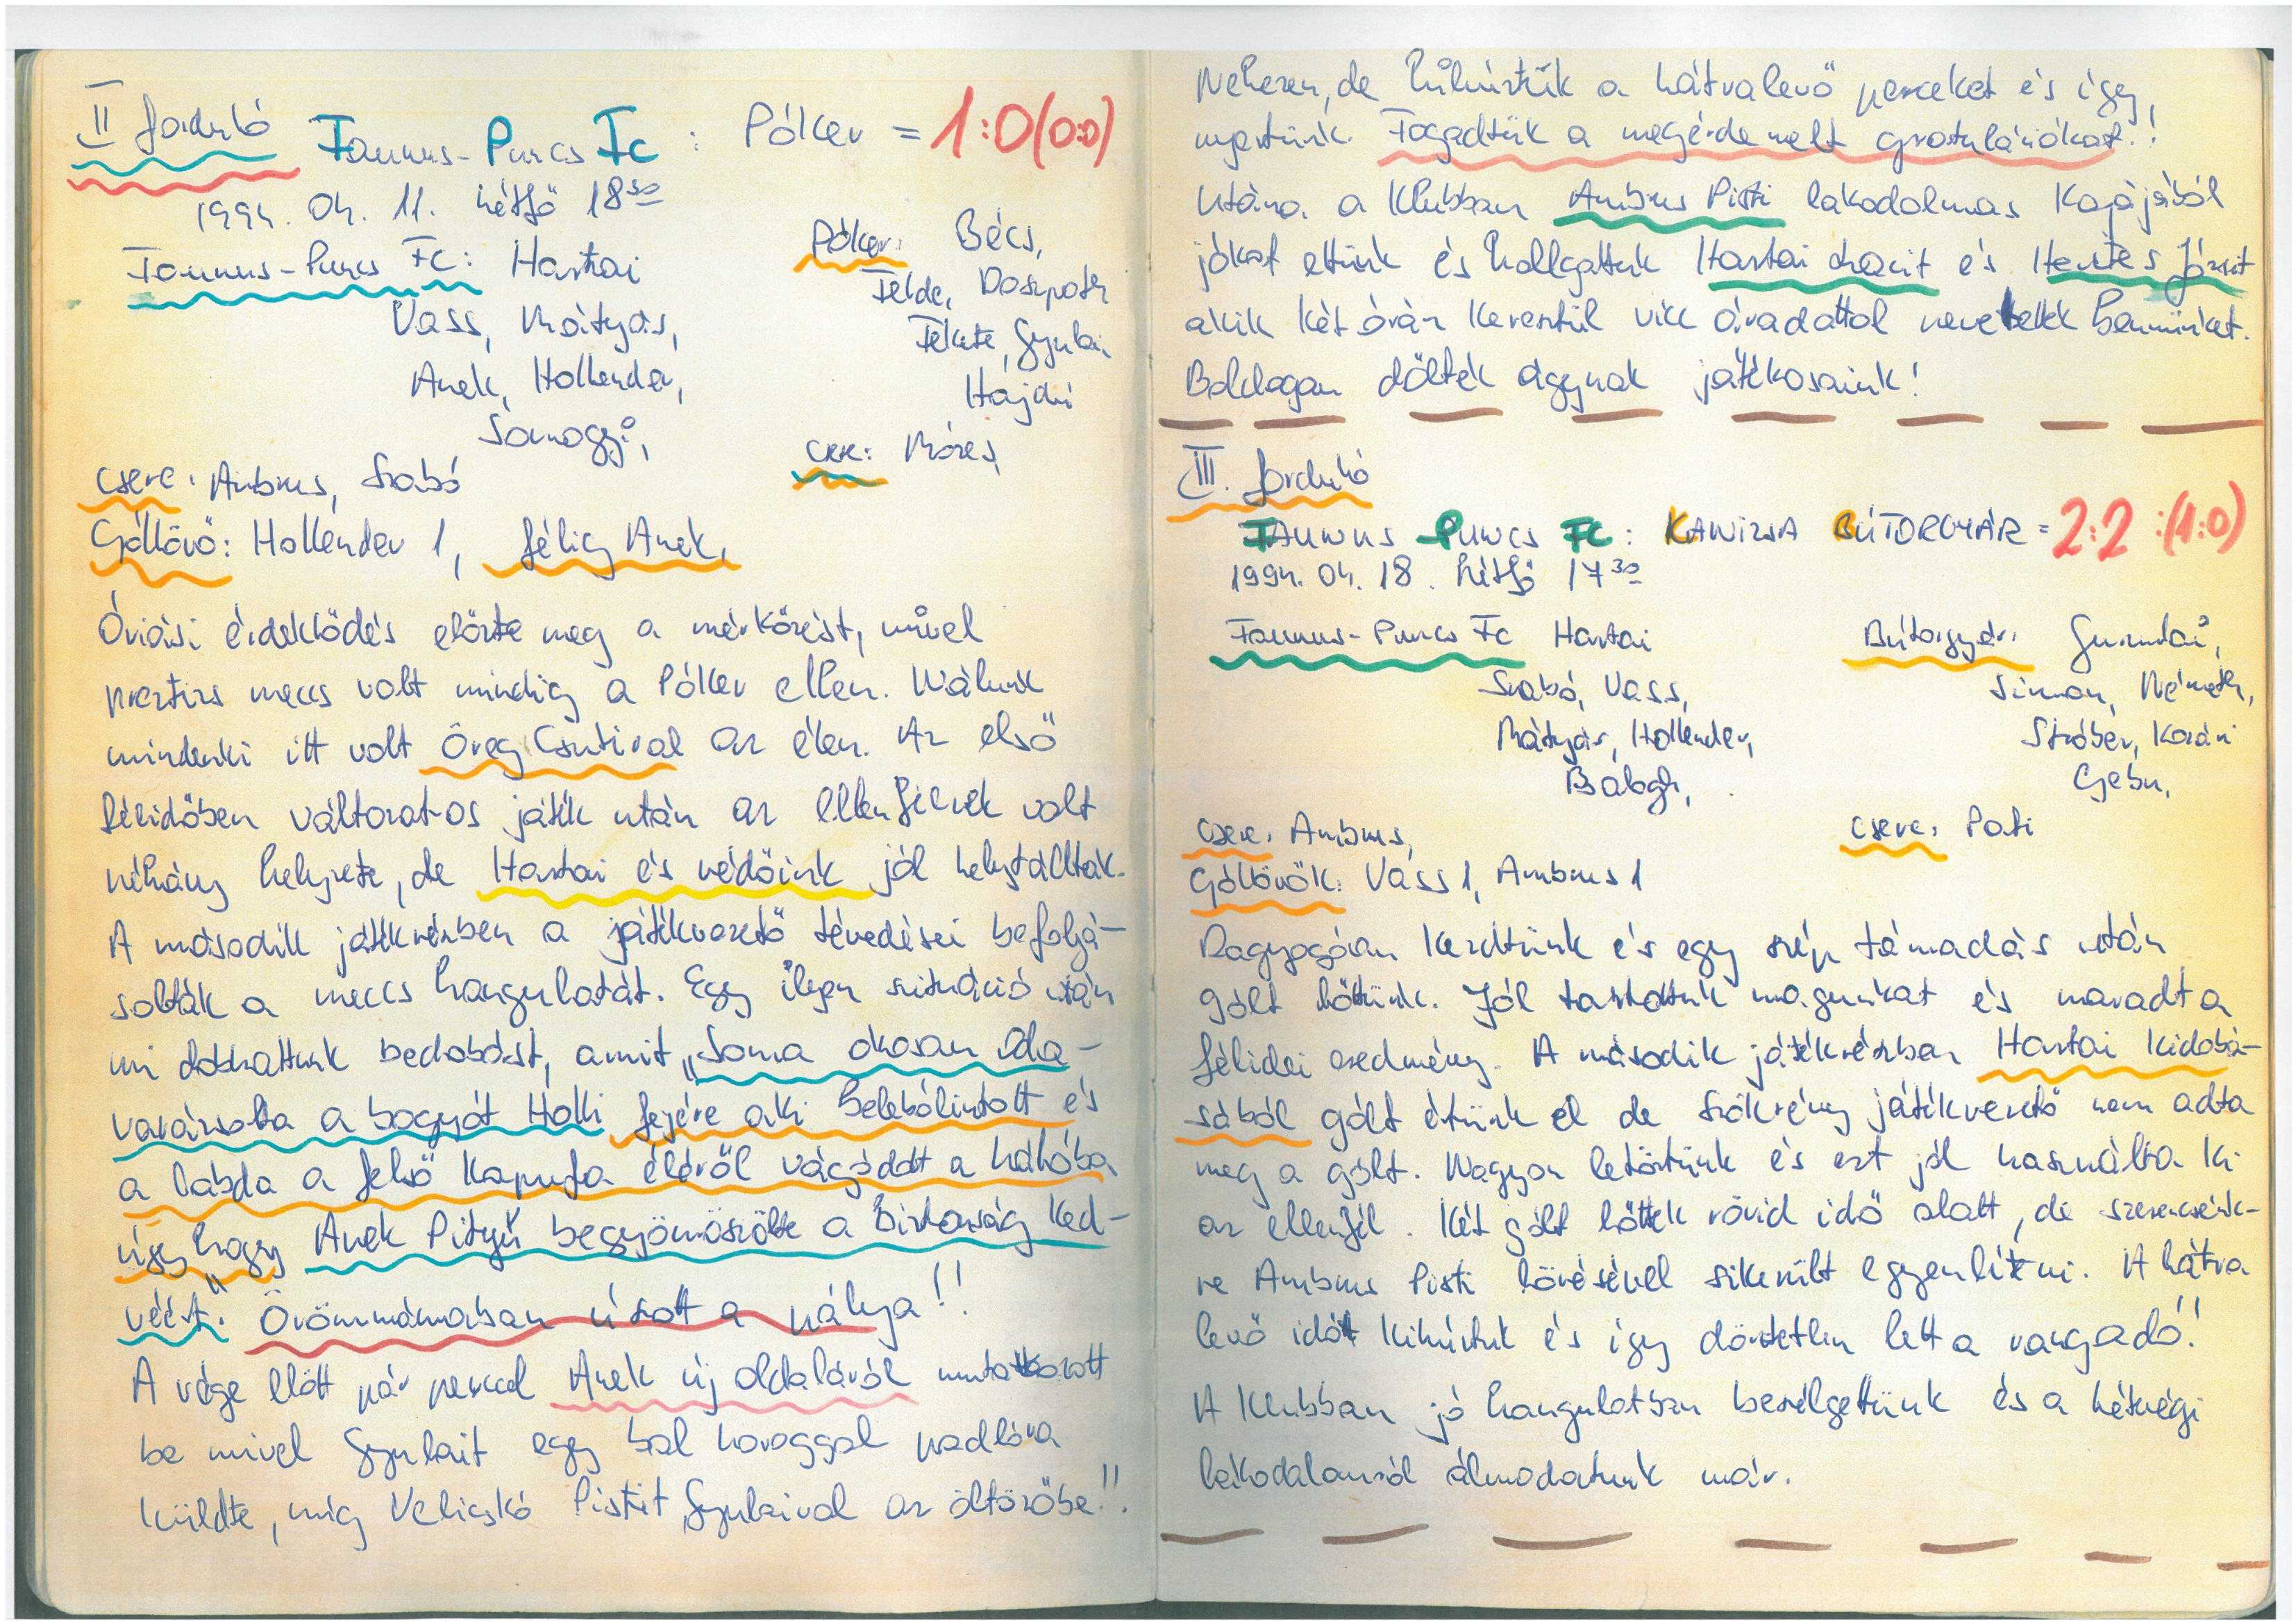 II forduló Taunus-Purcs Fc : Pólker = 1:0 (0:0)
1994. 04. 11. hétfő 18³⁰
Taunus-Purcs Fc: Hartai
Vass, Mátyás,
Anek, Hollender,
Somogyi,
Pólker: Bécs,
Felde, Doszpoth
Fekete, Gyulai,
Hajdú
csere: Móres,
csere: Ambrus, Szabó
Góllövő: Hollender 1, félig Anek,
Óriási érdeklődés előzte meg a mérkőzést, mivel
presztizs meccs volt mindig a Pólker ellen. Nálunk
mindenki itt volt Öreg Csutival az élen. Az első
félidőben változatos játék után az ellenfélnek volt
néhány helyzete, de Hartai és védőink jól helytálltak.
A második játékrészben a játékvezető tévedései befolyá-
solták a meccs hangulatát. Egy ilyen szituáció után
mi dobhattunk bedobást, amit „Soma okosan oda-
varázsolta a bogyót Holli fejére aki belebólintott és
a labda a felső kapufa éléről vágódott a hálóba
úgy, hogy Anek Pityu begyömöszölte a biztonság ked-
véért." Örömmámorban úszott a pálya!!
A vége előtt pár perccel Anek új oldaláról mutatkozott
be mivel Gyulait egy bal horoggal padlóra
küldte, míg Velicskó Pistit Gyulaival az öltözőbe!!
Nehezen, de kihúztuk a hátralevő perceket és így
nyertünk. Fogadtuk a megérdemelt gratulációkat!!
Utána a Klubban Ambrus Pisti lakodalmas kajájából
jókat ettünk és hallgattuk Hartai Lacit és Hentes Józsit
akik két órán keresztül vicc áradattal nevettettek bennünket.
Boldogan dőltek ágynak játékosaink!
III. forduló
TAUNUS-PURCS FC : KANIZSA BÚTORGYÁR = 2:2 (1:0)
1994. 04. 18. hétfő 17³⁰
Taunus-Purcs Fc Hartai
Szabó, Vass,
Mátyás, Hollender,
Balogh,
Bútorgyár:
Simon, Németh,
Stróber, Kozári
Czebu,
csere: Ambrus,
csere: Pati
Góllövők: Vass 1, Ambrus 1
Ragyogóan kezdtünk és egy szép támadás után
gólt lőttünk. Jól tartottuk magunkat és maradt a
félidei eredmény. A második játékrészben Hartai kidobá-
sából gólt értünk el de Szökrény játékvezető nem adta
meg a gólt. Nagyon letörtünk és ezt jól használta ki
az ellenfél. Két gólt lőttek rövid idő alatt, de szerencsénk-
re Ambrus Pisti lövésével sikerült egyenlíteni. A hátra
levő időt kihúztuk és így döntetlen lett a rangadó!!
A Klubban jó hangulatban beszélgettünk és a hétvégi
lakodalomról álmodoztunk már.